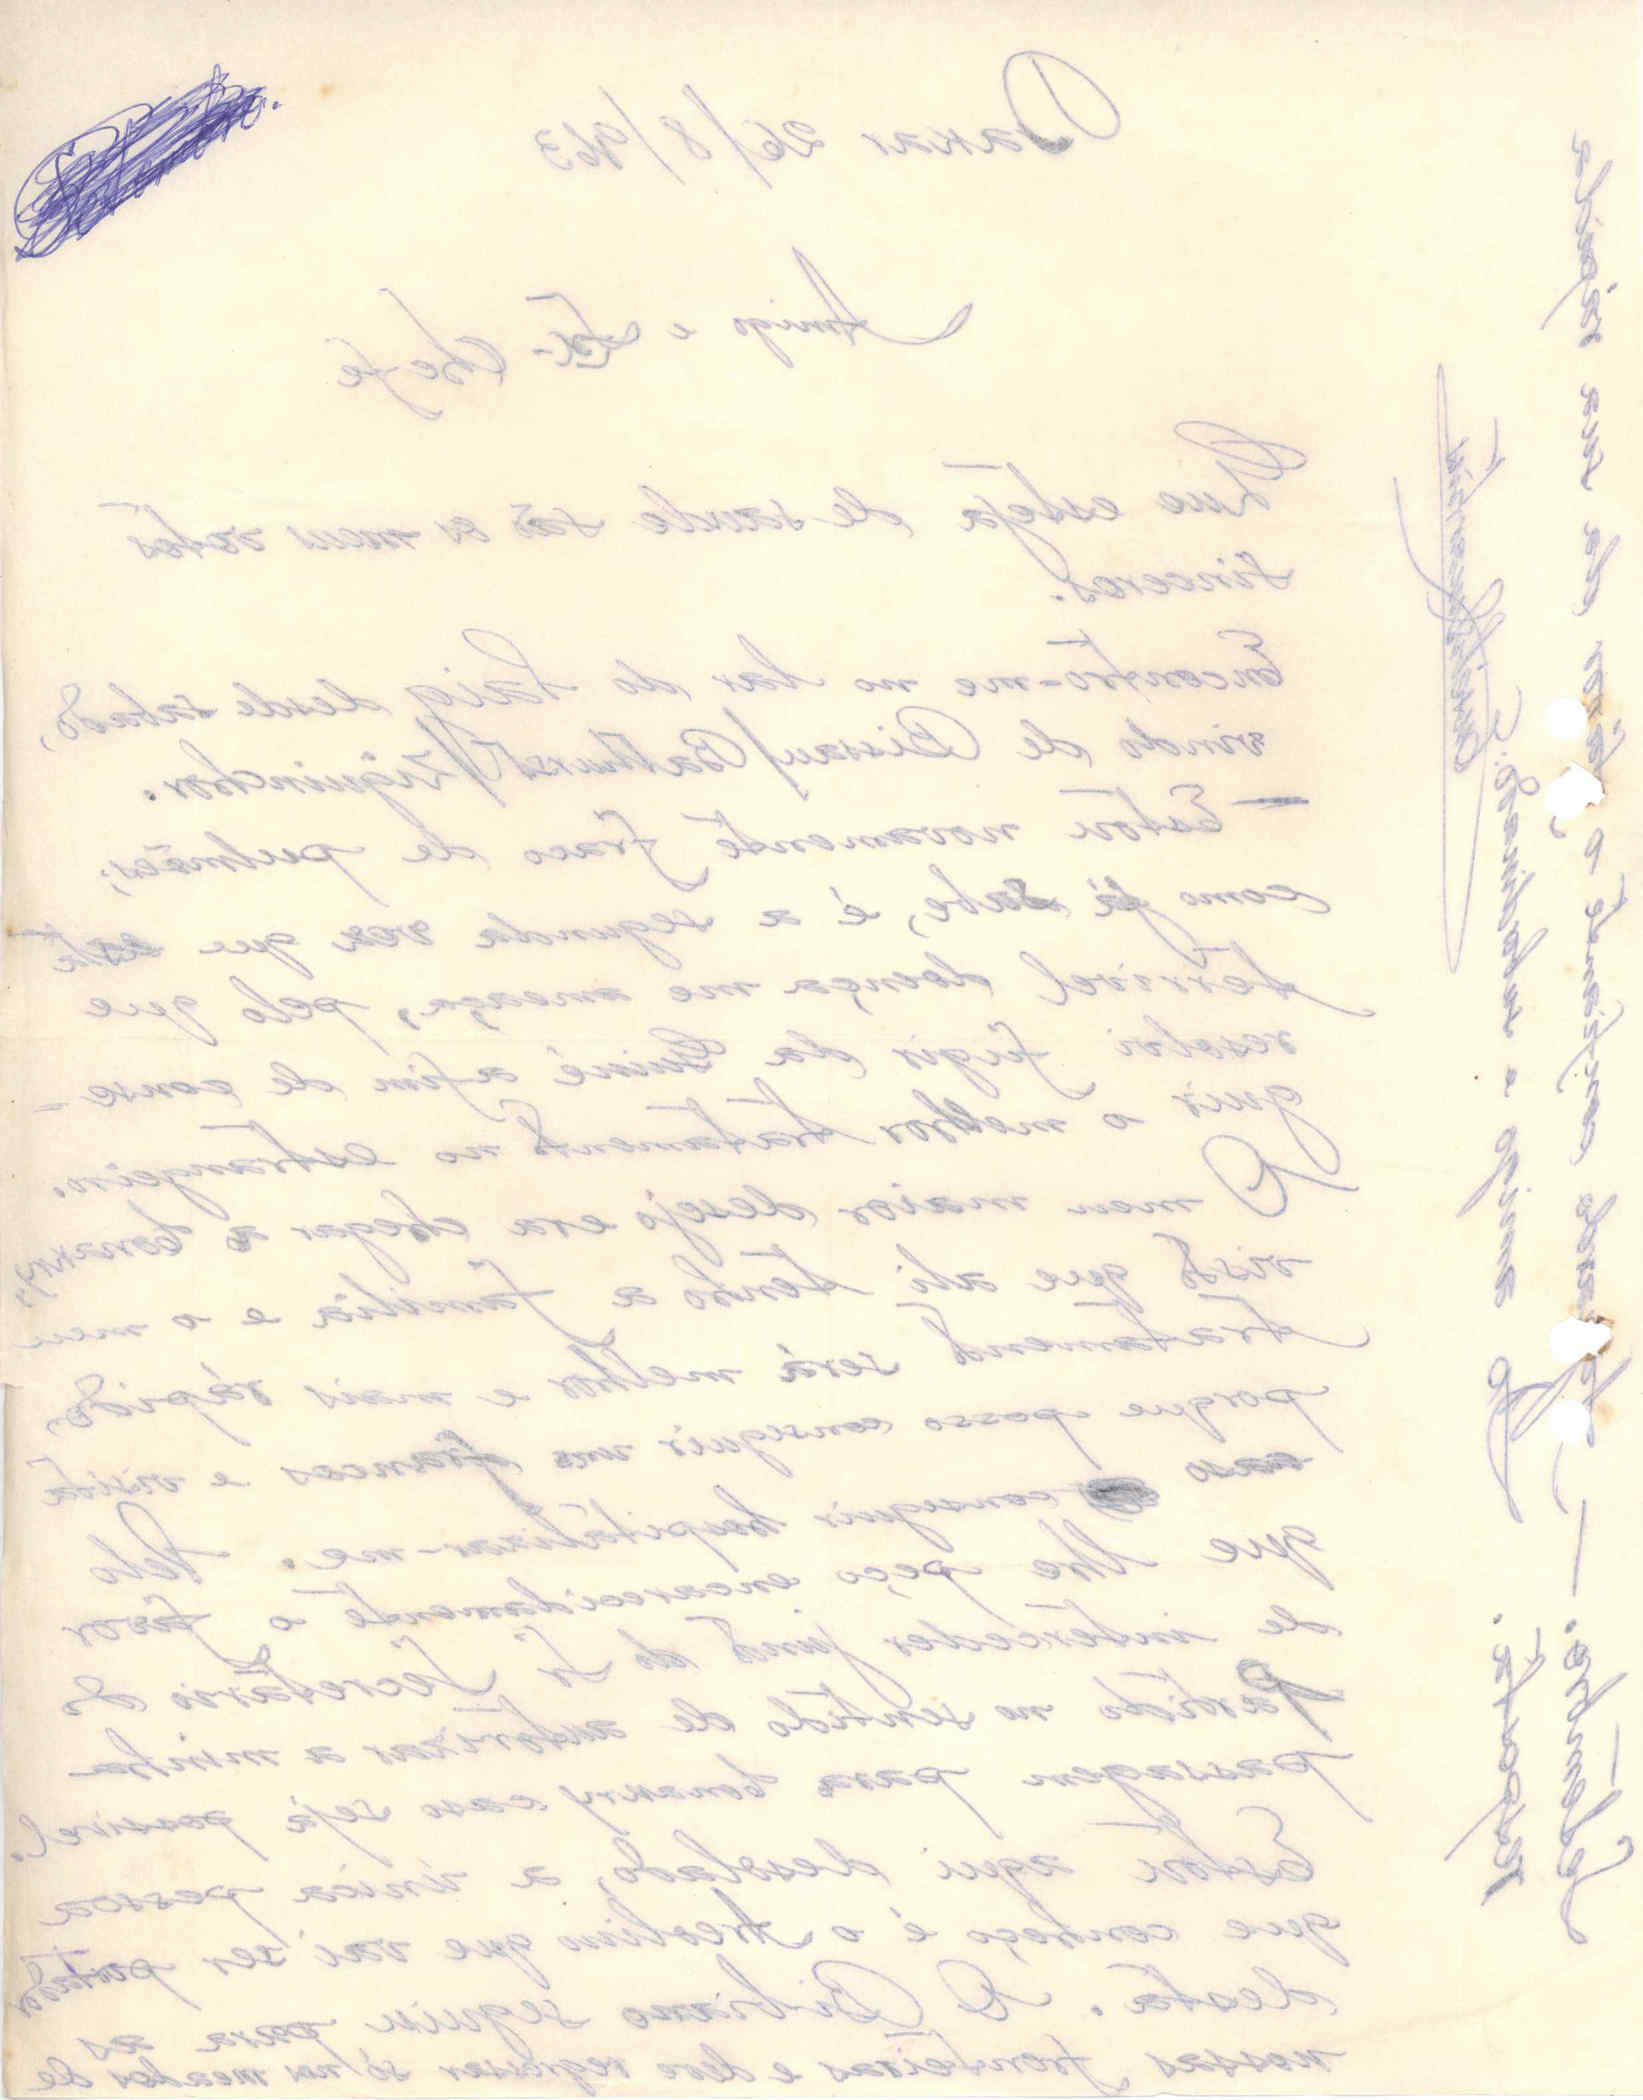 Dakar 26/8/963
Amigo e Ex-Chefe
Que esteja de saude são os meus votos
sinceros.
Encontro-me no lar do Laig desde sabado,
vindo de Bissau/Bathurst/Ziguinchor.
— Estou novamente fraco de pulmões,
como já sabe, é a segunda vez que esta
terrivel doença me ameaça, pelo que
resolvi fugir da Guiné a fim de conse-
guir o melhor tratamento no estrangeiro.
O meu maior desejo era chegar a Conakry,
visto que ali tenho a familia e o meu
tratamento será melhor e mais rápido,
porque posso conseguir uns francos e visita
caso conseguir hospitalizar-me. Pelo
que lhe peço encarecidamente o favor
de interceder junto do Sr Secretário do
Partido no sentido de autorizar a minha
passagem para Conakry caso seja possivel.
Estou aqui desolado, a única pessoa
que conheço é o que vai ser portador
desta. O Bibiano seguiu para as
nossas fronteiras e deve regressar só nos meados de